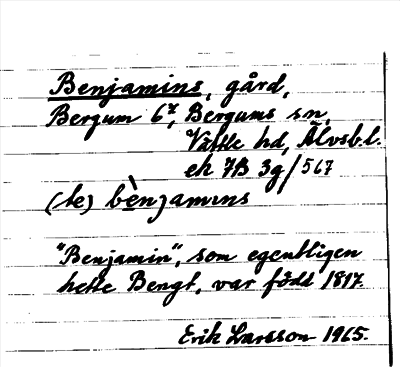 Benjamins, gård,
Bergum 6⁸, Bergums sn,
Vättle hd, Älvsb.l.
ek 7B 3g/567
(te) bènjamıns
"Benjamin", som egentligen
hette Bengt, var född 1817.
Erik Larsson 1965.